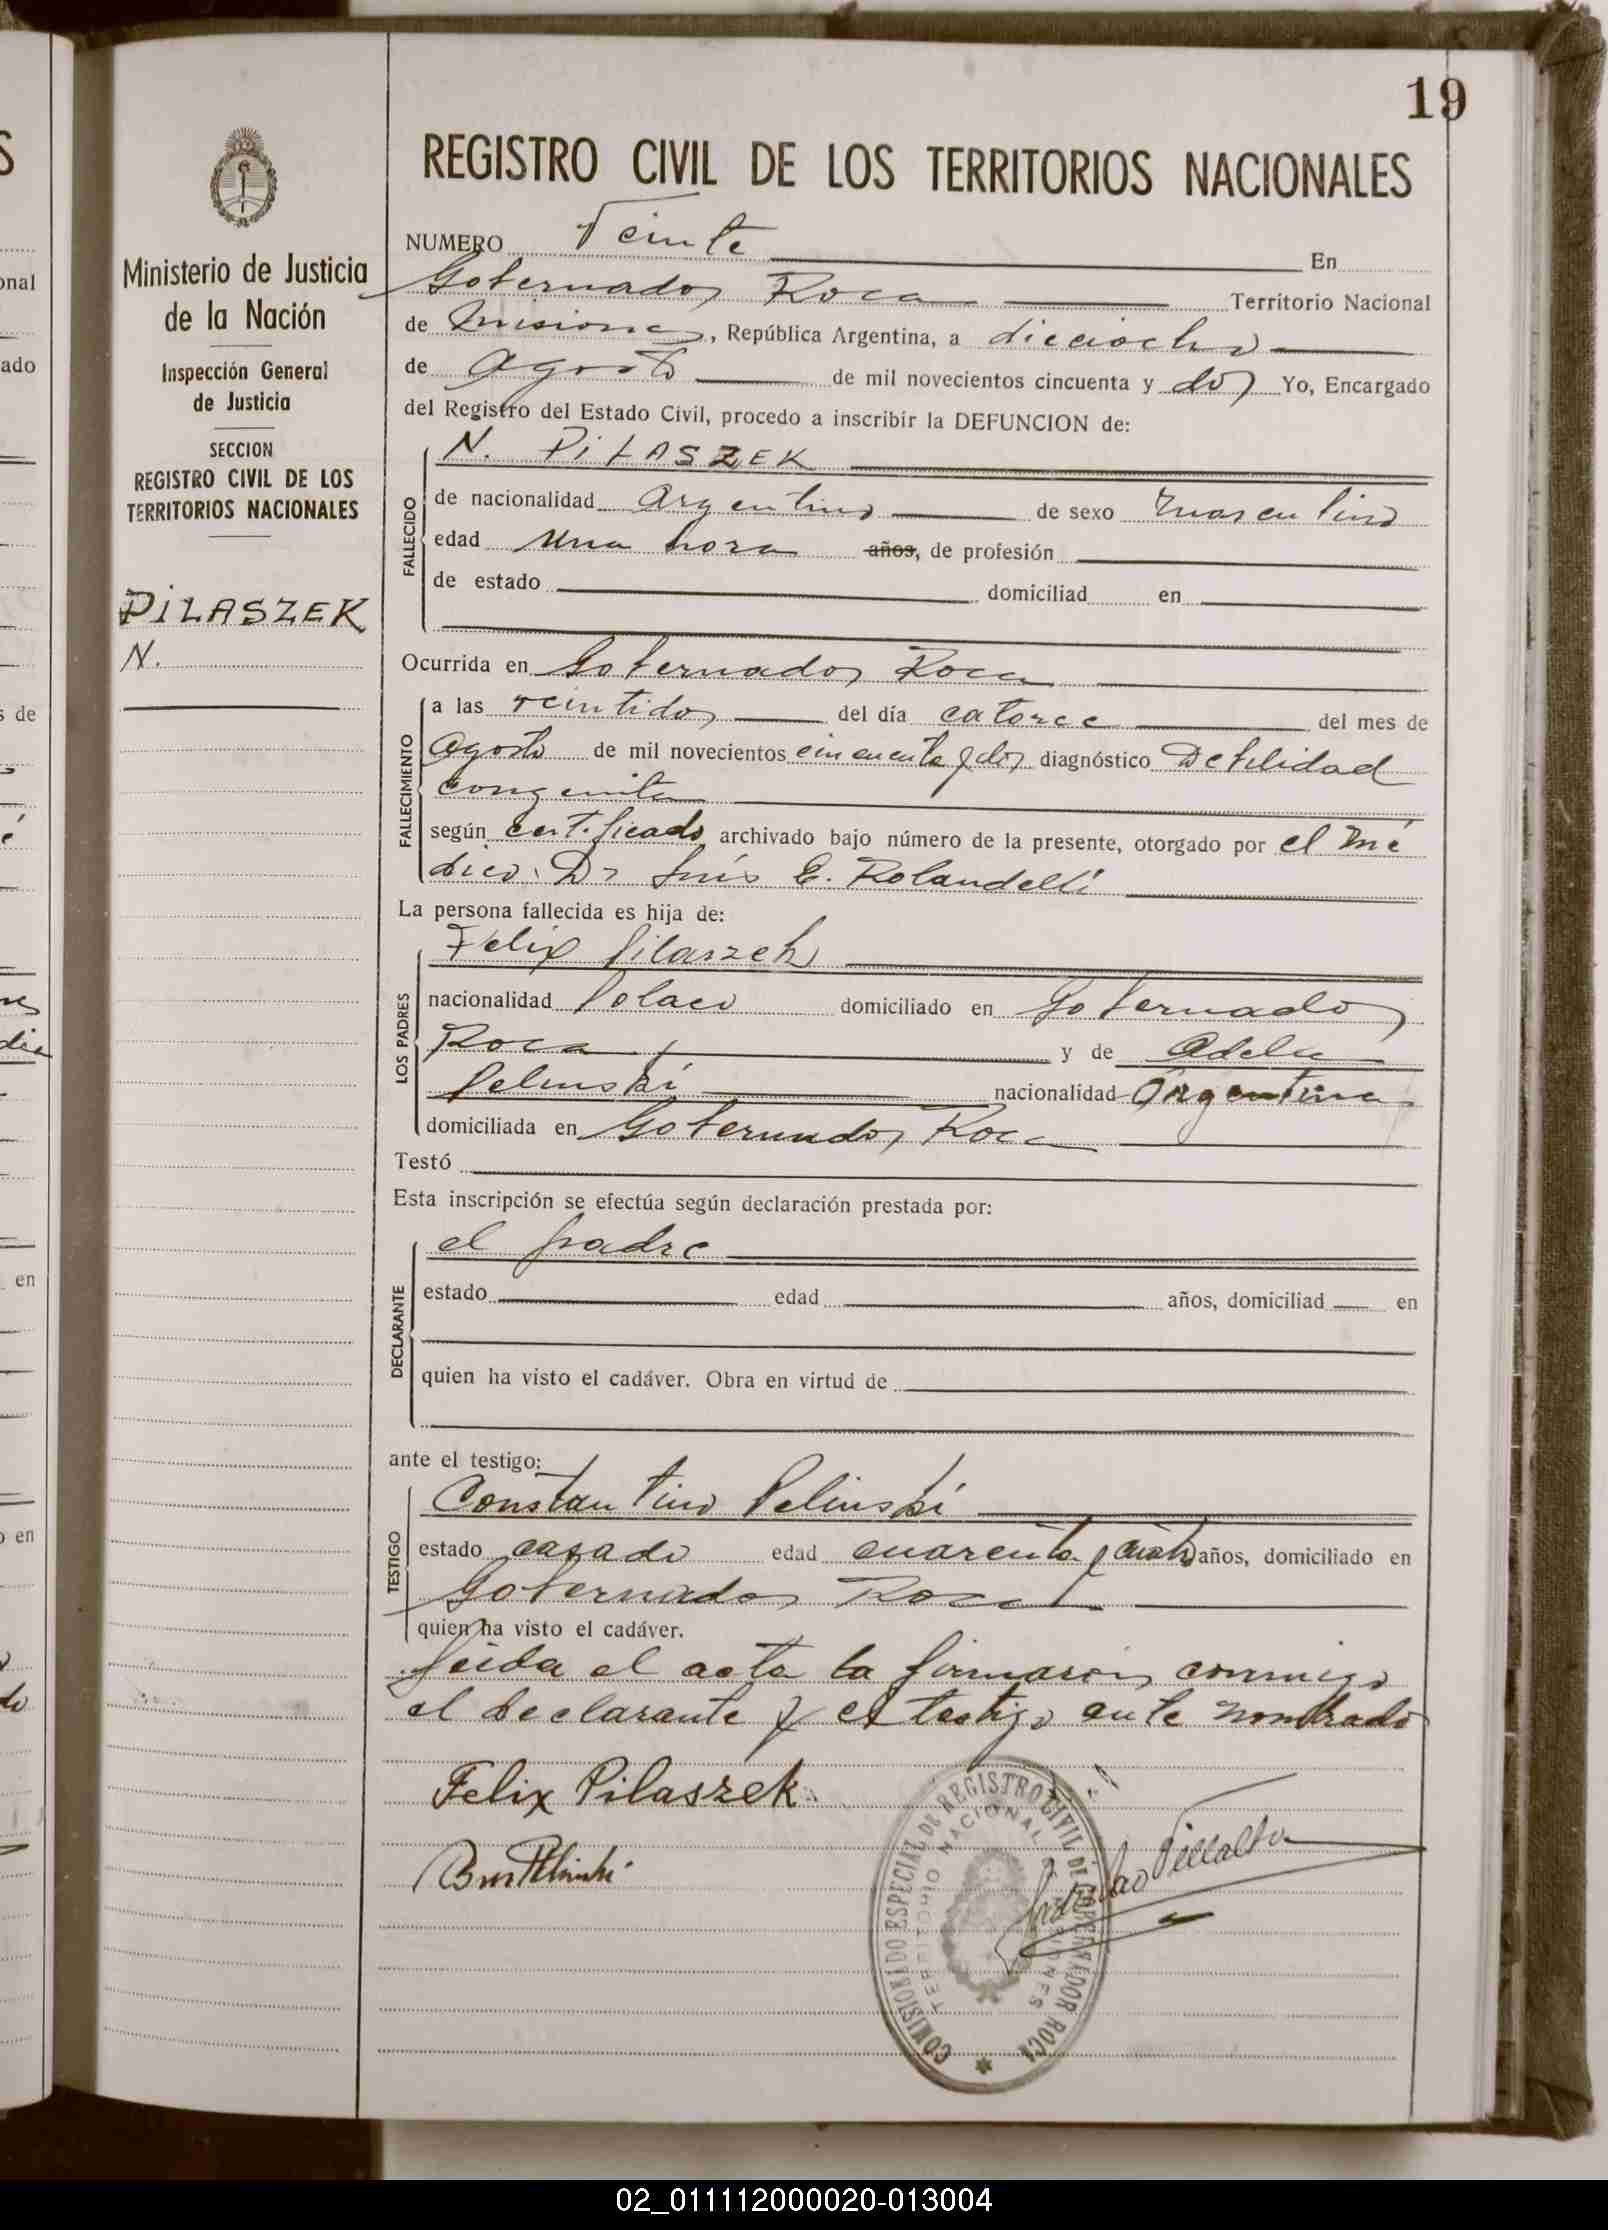 19
REGISTRO CIVIL DE LOS TERRITORIOS NACIONALES
Ministerio de Justicia
de la Nación
Inspección General
de Justicia
SECCION
REGISTRO CIVIL DE LOS
TERRITORIOS NACIONALES
PILASZEK
N.
NUMERO Veinte En
Gobernador Roca Territorio Nacional
de Misiones, República Argentina, a dieciocho
de Agosto de mil novecientos cincuenta y dos Yo, Encargado
del Registro del Estado Civil, procedo a inscribir la DEFUNCION de:
N. PILASZEK
FALLECIDO
de nacionalidad Argentino de sexo masculino
edad una hora años, de profesión
de estado domiciliad en
Ocurrida en Gobernador Roca
FALLECIMIENTO
a las veintidos del día catorce del mes de
Agosto de mil novecientos cincuenta y dos diagnóstico Debilidad
congenita
según certificado archivado bajo número de la presente, otorgado por el Mé
dico. Dr Luís E. Rolandelli
La persona fallecida es hija de:
LOS PADRES
Felix Pilaszek
nacionalidad Polaco domiciliado en Gobernador
Roca y de Adela
Pelinski nacionalidad Argentina
domiciliada en Gobernador Roca
Testó
Esta inscripción se efectúa según declaración prestada por:
DECLARANTE
el padre
estado edad años, domiciliad en
quien ha visto el cadáver. Obra en virtud de
ante el testigo:
TESTIGO
Constantino Pelinski
estado casado edad cuarenta y cuatro años, domiciliado en
Gobernador Roca
quien ha visto el cadáver.
Leida el acta la firmaron conmigo
el declarante y el testigo ante nombrado
Felix Pilaszek
COMISIONADO ESPECIAL DE REGISTRO CIVIL DE GOBERNADOR ROCA
TERRITORIO NACIONAL DE MISIONES
Villalba
02_011112000020-013004